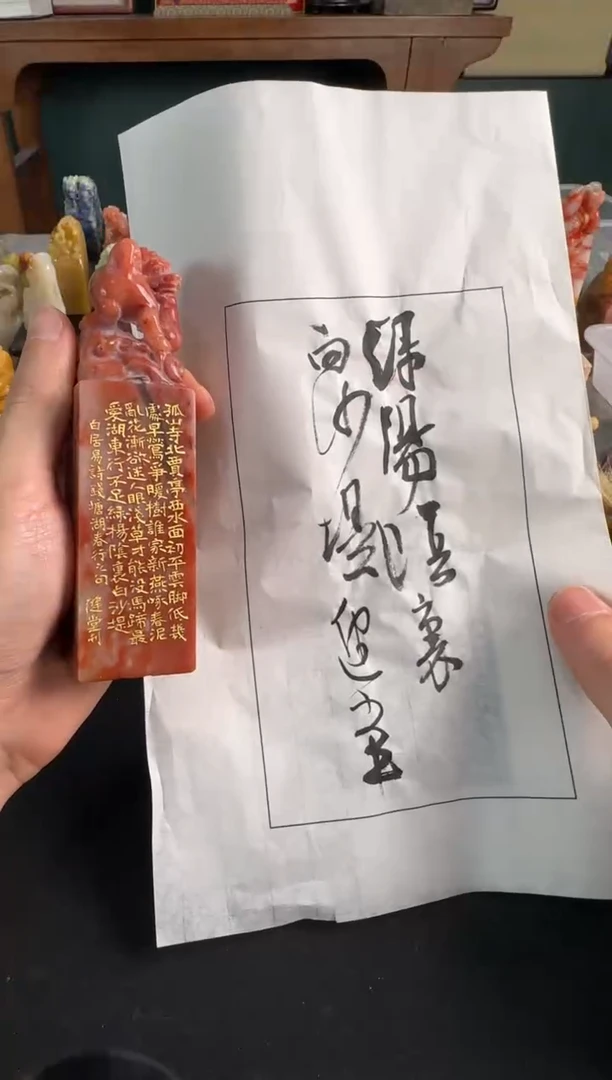 孤山寺北賈亭西水面初平雲脚低幾
處早鶯爭暖樹誰家新燕啄春泥
亂花漸欲迷人眼淺草才能没馬蹄最
愛湖東行不足綠揚陰裏白沙堤
白居易詩錢塘湖春行之句 健堂刊
綠陽陰裏
白沙堤